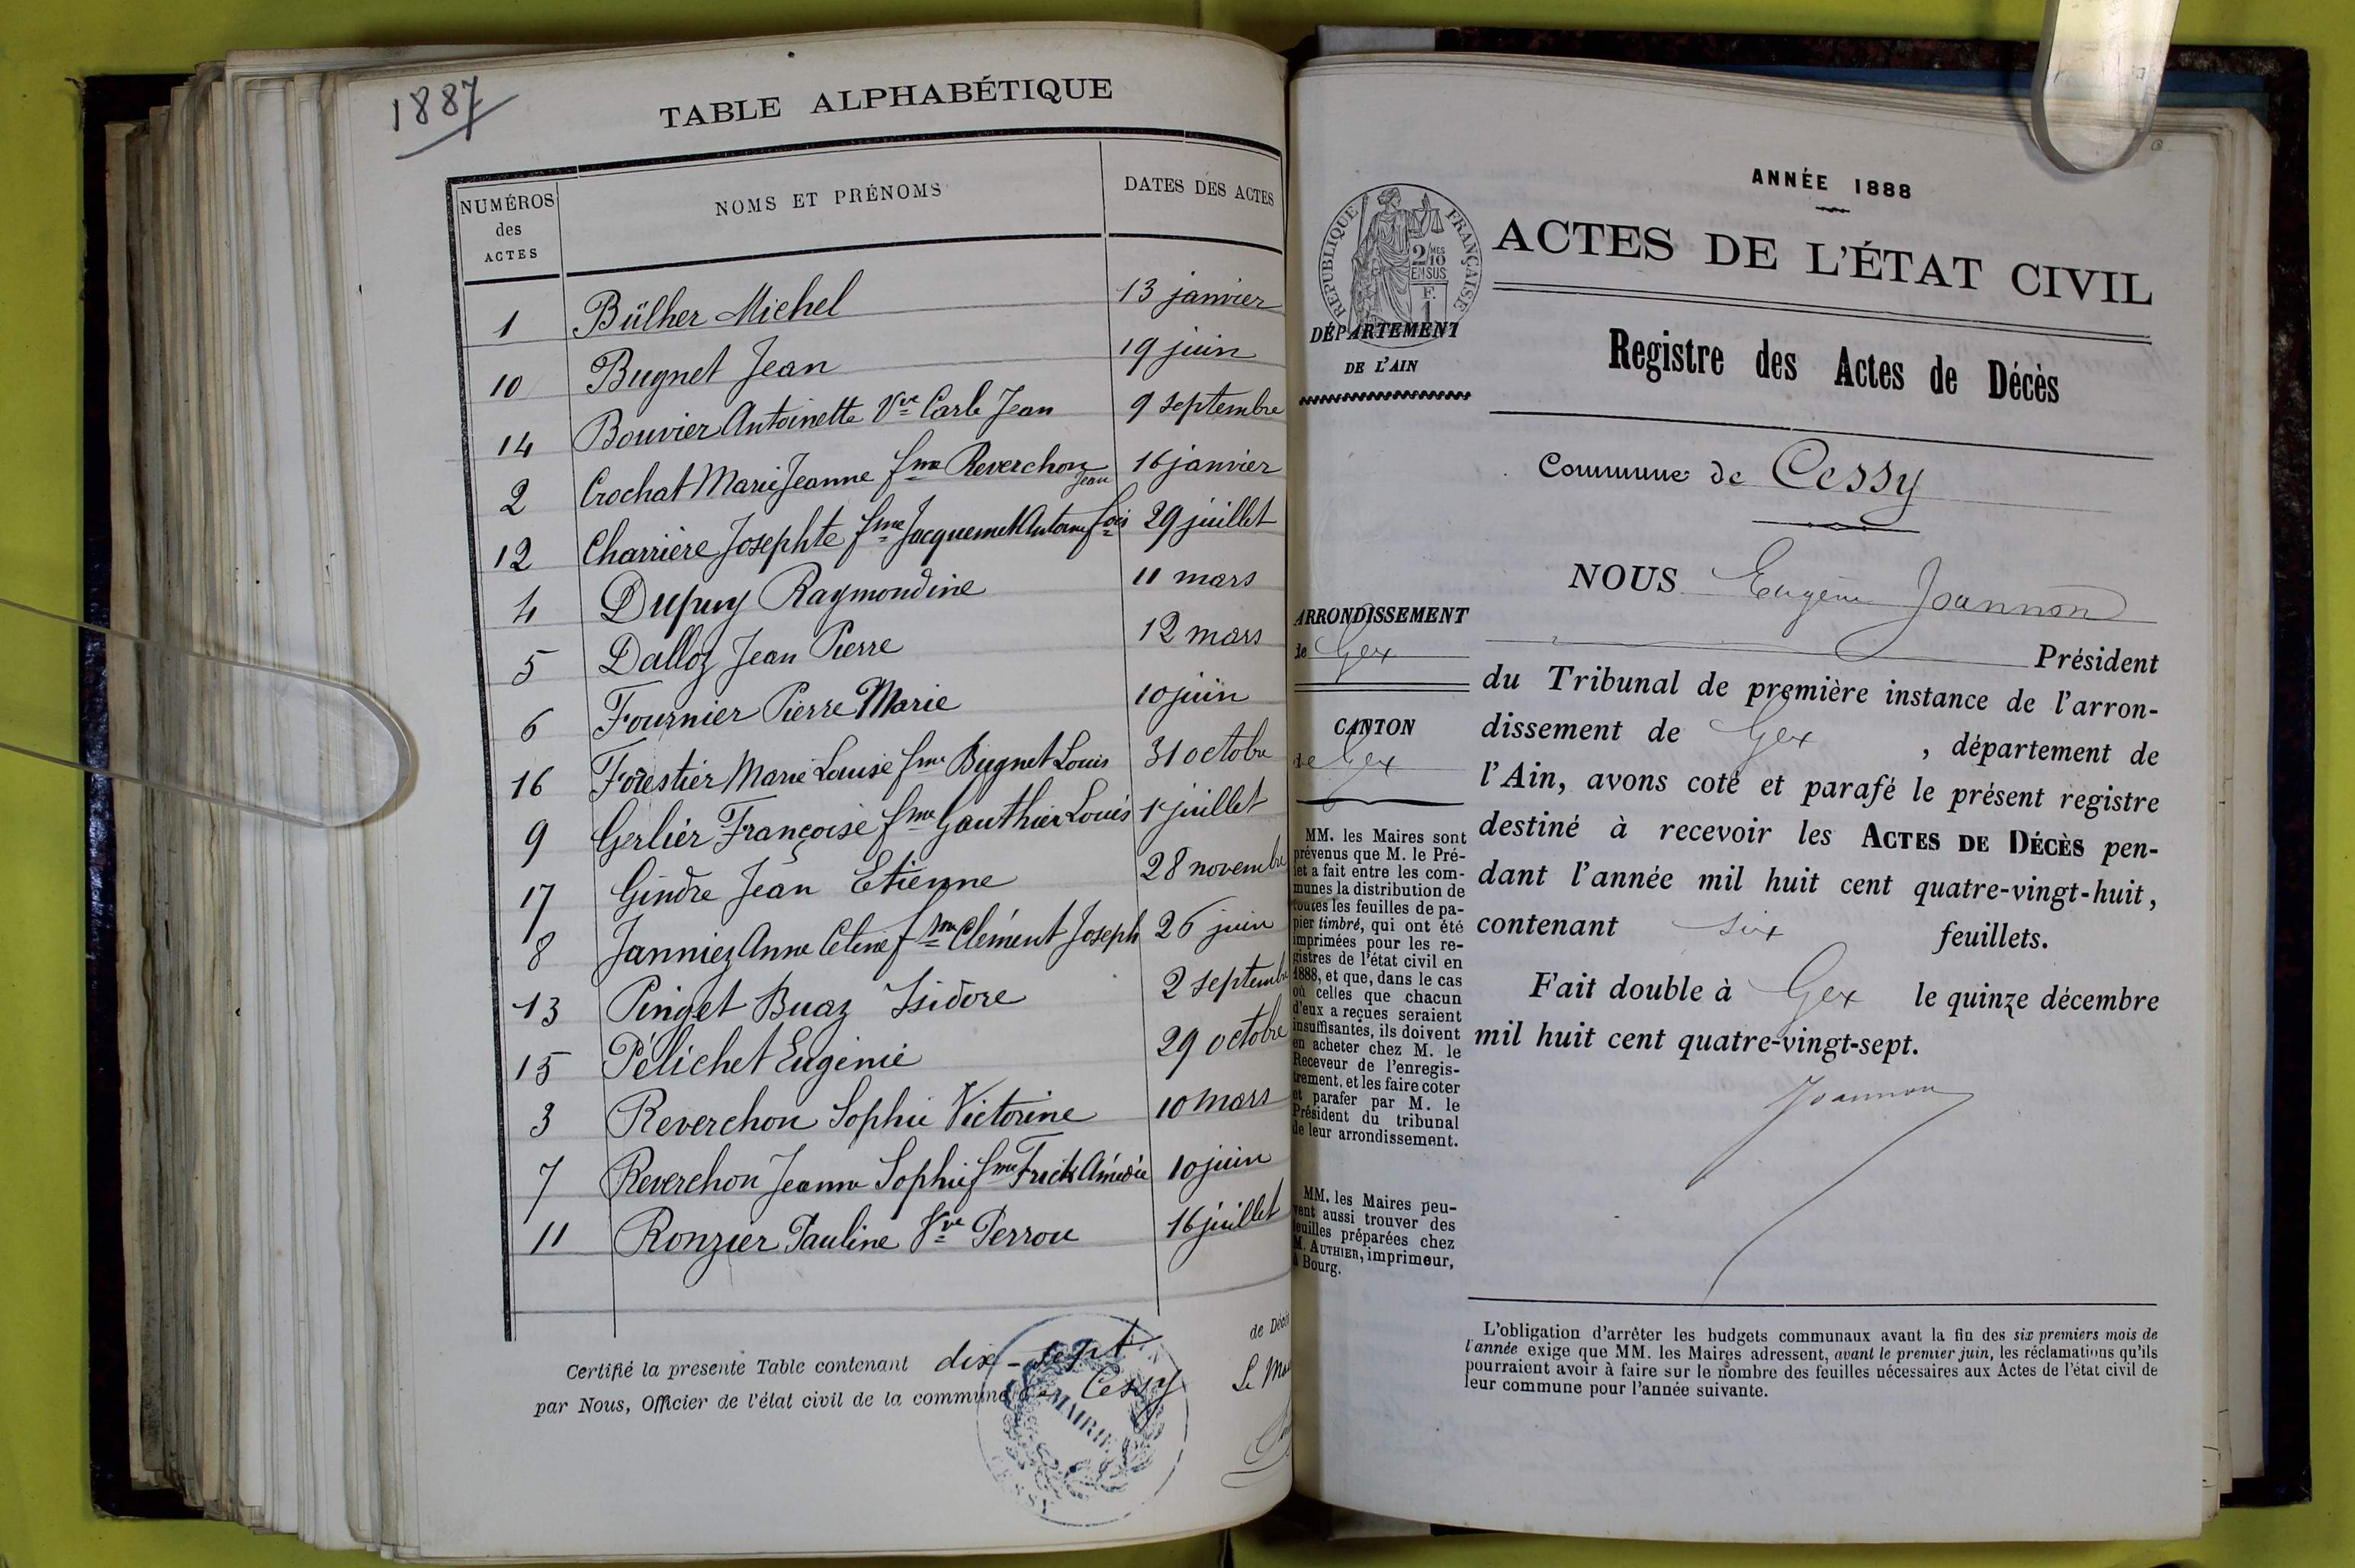 1887
TABLE ALPHABÉTIQUE
NUMÉROS des ACTES NOMS ET PRÉNOMS DATES DES ACTES
1 Bülher Michel 13 janvier
10 Bugnet Jean 19 juin
14 Bouvier Antoinette Vve Carle Jean 9 septembre
2 Crochat Marie Jeanne fme Reverchon Jean 16 janvier
12 Charrière Josephte fme Jacquemet Antoine fois 29 juillet
4 Dupuy Raymondine 11 mars
5 Dalloz Jean Pierre 12 mars
6 Fournier Pierre Marie 10 juin
16 Forestier Marie Louise fme Bugnet Louis 31 octobre
9 Gerlier Françoise fme Gauthier Louis 1r juillet
17 Gindre Jean Etienne 28 novembre
8 Janniez Anne Celine fme Clément Joseph 26 juin
13 Pinget Buaz Isidore 2 septembre
15 Pélichet Eugénie 29 octobre
3 Reverchon Sophie Victorine 10 mars
7 Reverchon Jeanne Sophie fme Frick Amédée 10 juin
11 Ronzier Pauline Vve Perrou 16 juillet
Certifié la presente Table contenant dix-sept de Décès
par Nous, Officier de l'état civil de la commune de Cessy Le Ma
MAIRIE
CESSY
ANNÉE 1888
RÉPUBLIQUE FRANÇAISE
2/10MES
EN SUS
F.
1
ACTES DE L'ÉTAT CIVIL
DÉPARTEMENT
DE L'AIN
Registre des Actes de Décès
Commune de Cessy
ARRONDISSEMENT
de Gex
CANTON
de Gex
MM. les Maires sont
prévenus que M. le Pré-
fet a fait entre les com-
munes la distribution de
toutes les feuilles de pa-
pier timbré, qui ont été
imprimées pour les re-
gistres de l'état civil en
1888, et que, dans le cas
où celles que chacun
d'eux a reçues seraient
insuffisantes, ils doivent
en acheter chez M. le
Receveur de l'enregis-
trement, et les faire coter
et parafer par M. le
Président du tribunal
de leur arrondissement.
MM. les Maires peu-
vent aussi trouver des
feuilles préparées chez
M. AUTHIER, imprimeur,
à Bourg.
NOUS Eugène Joannon
Président
du Tribunal de première instance de l'arron-
dissement de Gex , département de
l'Ain, avons coté et parafé le présent registre
destiné à recevoir les ACTES DE DÉCÈS pen-
dant l'année mil huit cent quatre-vingt-huit,
contenant six feuillets.
Fait double à Gex le quinze décembre
mil huit cent quatre-vingt-sept.
Joannon
L'obligation d'arrêter les budgets communaux avant la fin des six premiers mois de
l'année exige que MM. les Maires adressent, avant le premier juin, les réclamations qu'ils
pourraient avoir à faire sur le nombre des feuilles nécessaires aux Actes de l'état civil de
leur commune pour l'année suivante.